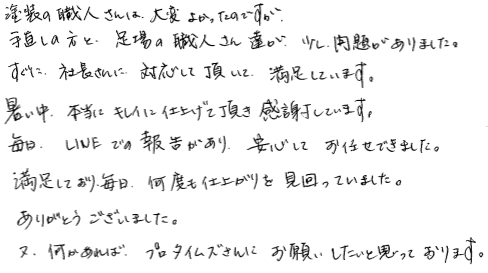 塗装の職人さんは、大変よかったのですが、
手直しの方と、足場の職人さん達が、少し問題がありました。
すぐに、社長さんに対応して頂いて、満足しています。
暑い中、本当にキレイに仕上げて頂き感謝しています。
毎日、LINEでの報告があり、安心してお任せできました。
満足しており、毎日、何度も仕上がりを見回っていました。
ありがとうございました。
又、何かあれば、プロタイムズさんにお願いしたいと思っております。